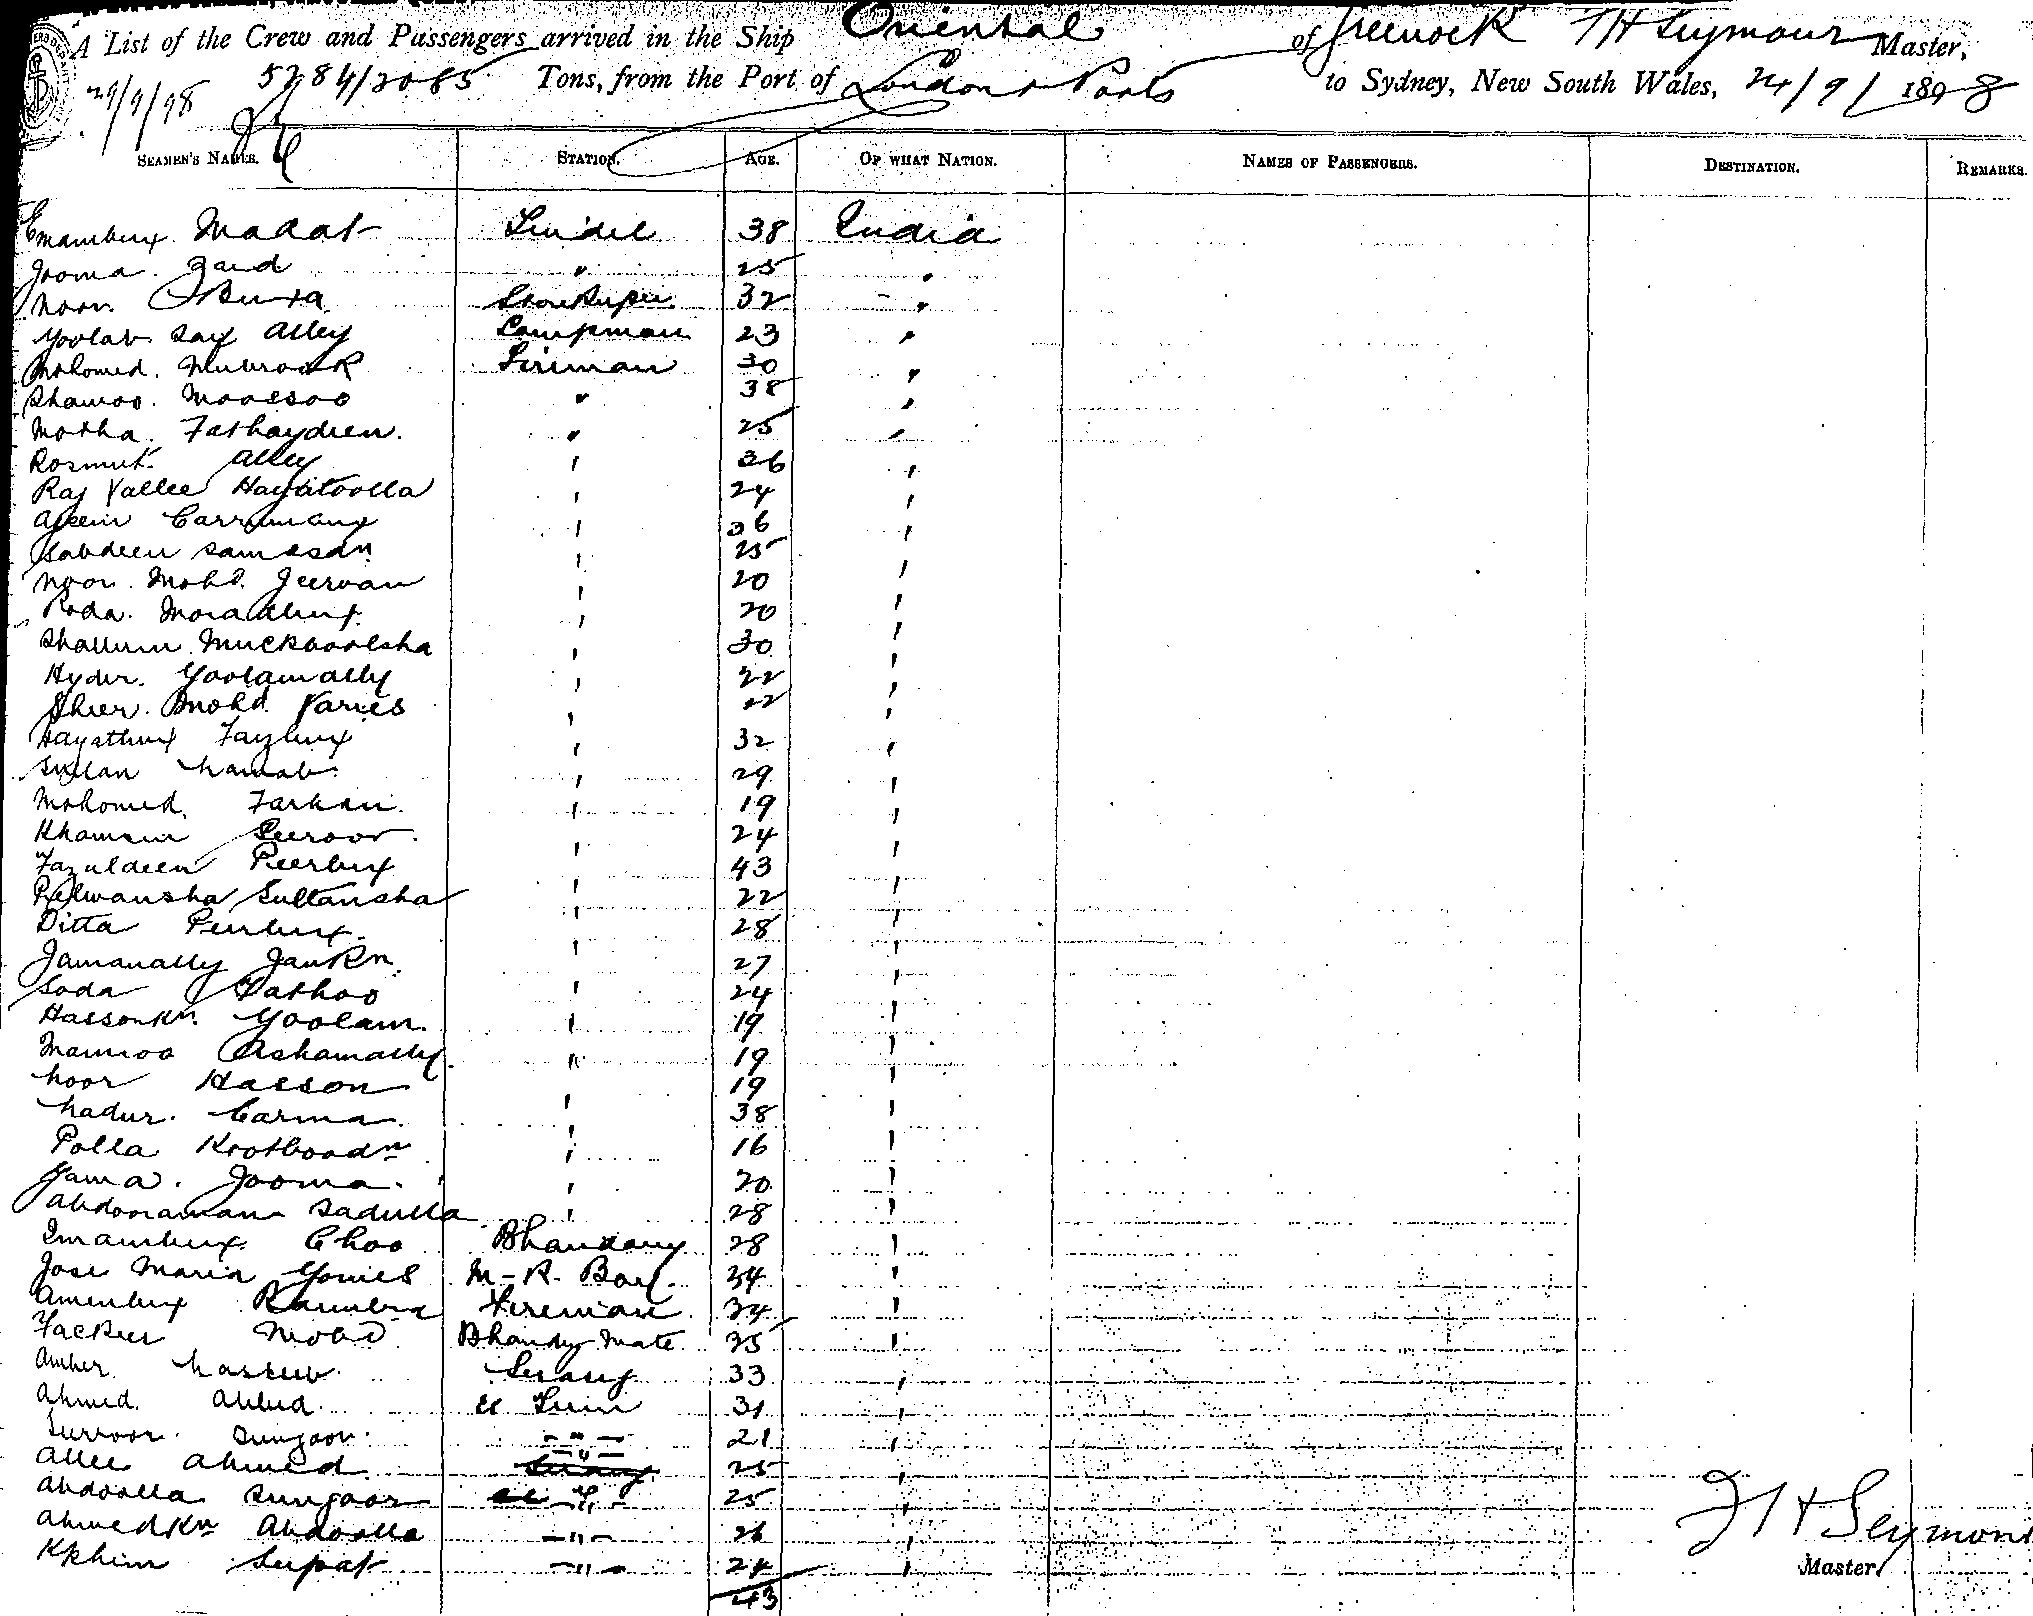 A List of the Crew and Passengers arrived in the Ship Oriental of Greenock TH Seymour Master,
29/9/98 5284/3085 Tons, from the Port of London & Ports to Sydney, New South Wales, 24/9/1898
SEAMEN'S NAMES. STATION. AGE. OF WHAT NATION. NAMES OF PASSENGERS. DESTINATION. REMARKS.
Emambux Madat Tindel 38 India
Jooma Zaid " 25 "
Noor Bura Storekeeper 32 "
Goolab Say Alley Lampman 23 "
Mohomed Mubrook Fireman 30 "
Shamoo Moosoo " 38 "
Motha Fathaydeen " 25 "
Rosmut Alley " 36 "
Raj Vallee Hayatoolla " 24 "
Ajeem Carrimbux " 36 "
Sabdeen " 25 "
Noor Mohd. Jeewan " 20 "
Roda Moradbux " 20 "
Shallum Muckboolsha " 30 "
Hyder Goolamally " 22 "
Sheer Mohd. Varies " 22 "
Hayatbux Fayzbux " 32 "
Sultan Nawab " 29 "
Mohomed Farhan " 19 "
Khamsin Seroor " 24 "
Fazuldeen Peerbux " 43 "
Relwansha Sultansha " 22 "
Ditta Peerbux " 28 "
Jamanally Jankn " 27 "
Soda Fathoo " 24 "
Hassonkn Goolam " 19 "
Mamroo Ashamally " 19 "
Noor Hasson " 19 "
Nadur Carma " 38 "
Polla Kootboodn " 16 "
Jama Jooma " 20 "
Abdooraman Sadulla " 28 "
Emambux Choo Bhandary 28 "
Jose Maria Gomes M-R. Boy 34 "
Amenbux Rambux Fireman 34 "
Fackeer Mohd Bhandy Mate 35 "
Amber Nasseeb Serang 33 "
Ahmed Abbud 31 "
Surroor Sungoor -"- 21 "
Allee Ahmed -"- Serang 25 "
Abdoolla Sungoor -"- 25 "
Ahmedkn Abdoolla -"- 26 "
Supat -"- 24 "
43
TH Seymour
Master